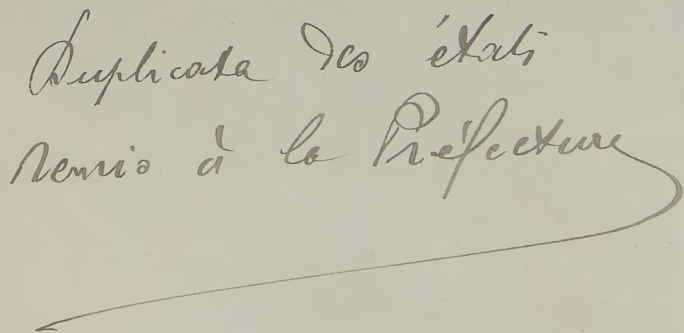 Duplicata des états
remis à la Préfecture